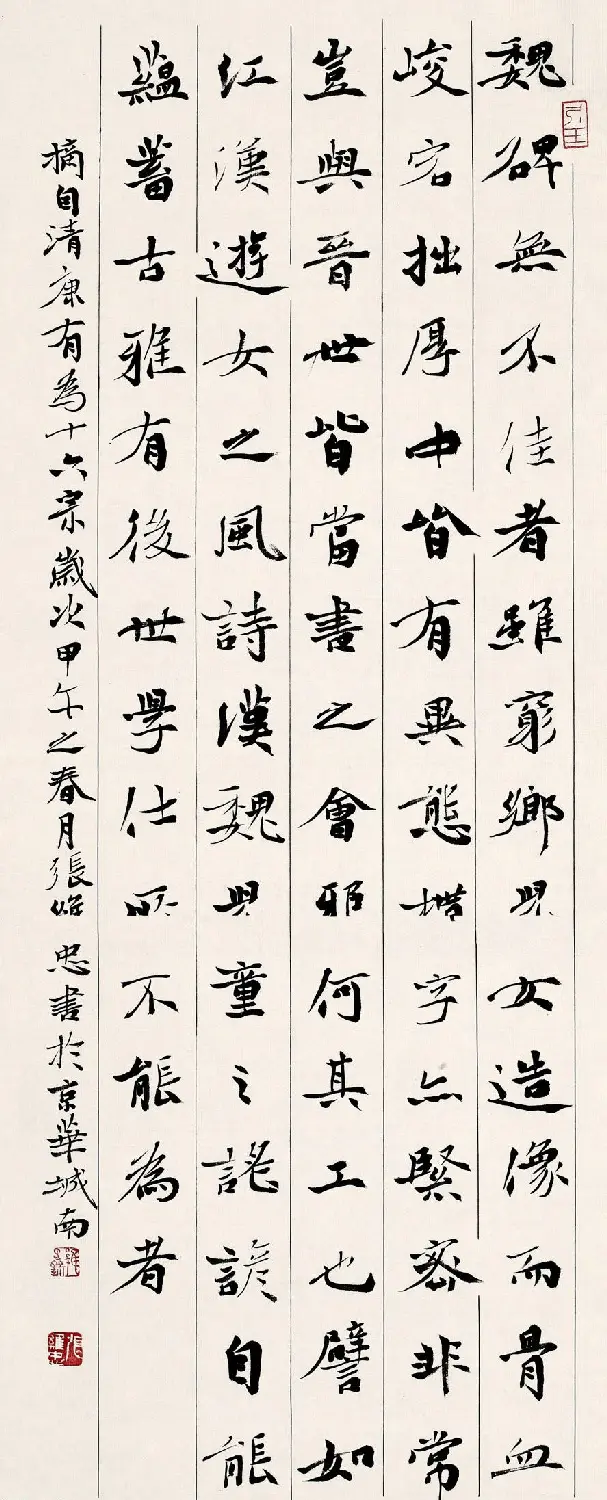 魏碑無不佳者雖窮鄉兒女造像而骨血
峻宕拙厚中皆有異態構字亦緊密非常
豈與晉世皆當書之會邪何其工也譬如
江漢遊女之風詩漢魏兒童之謠諺自能
蘊蓄古雅有後世學仕所不能為者
摘自清康有為十六宗歲次甲午之春月張維忠書於京華城南